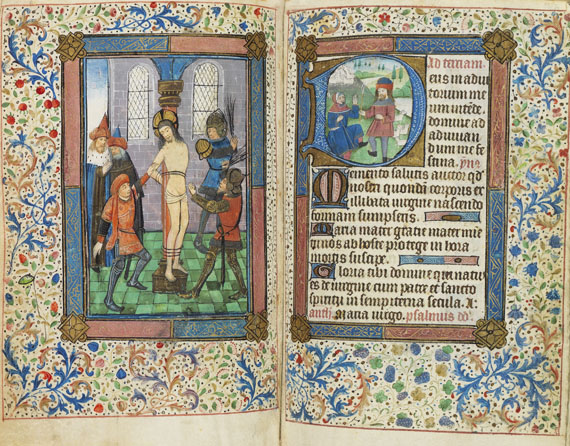 Ad terciam.
Deus in adiu
torium me
um intēde.
domine ad
adiuuan
dum me fe
stina. yn9.
Memento salutis auctor qd
nostri quondā corporis ex
illibata uirgine nascendo
formam sumpseris
Maria mater gratie mater mie
nos ab hoste protege in hora
mortis suscipe
Gloria tibi domine qui natus
es de uirgine cum patre et sancto
spiritu in sempiterna secula. A.
anth. Maria uirgo. psalmus dd.